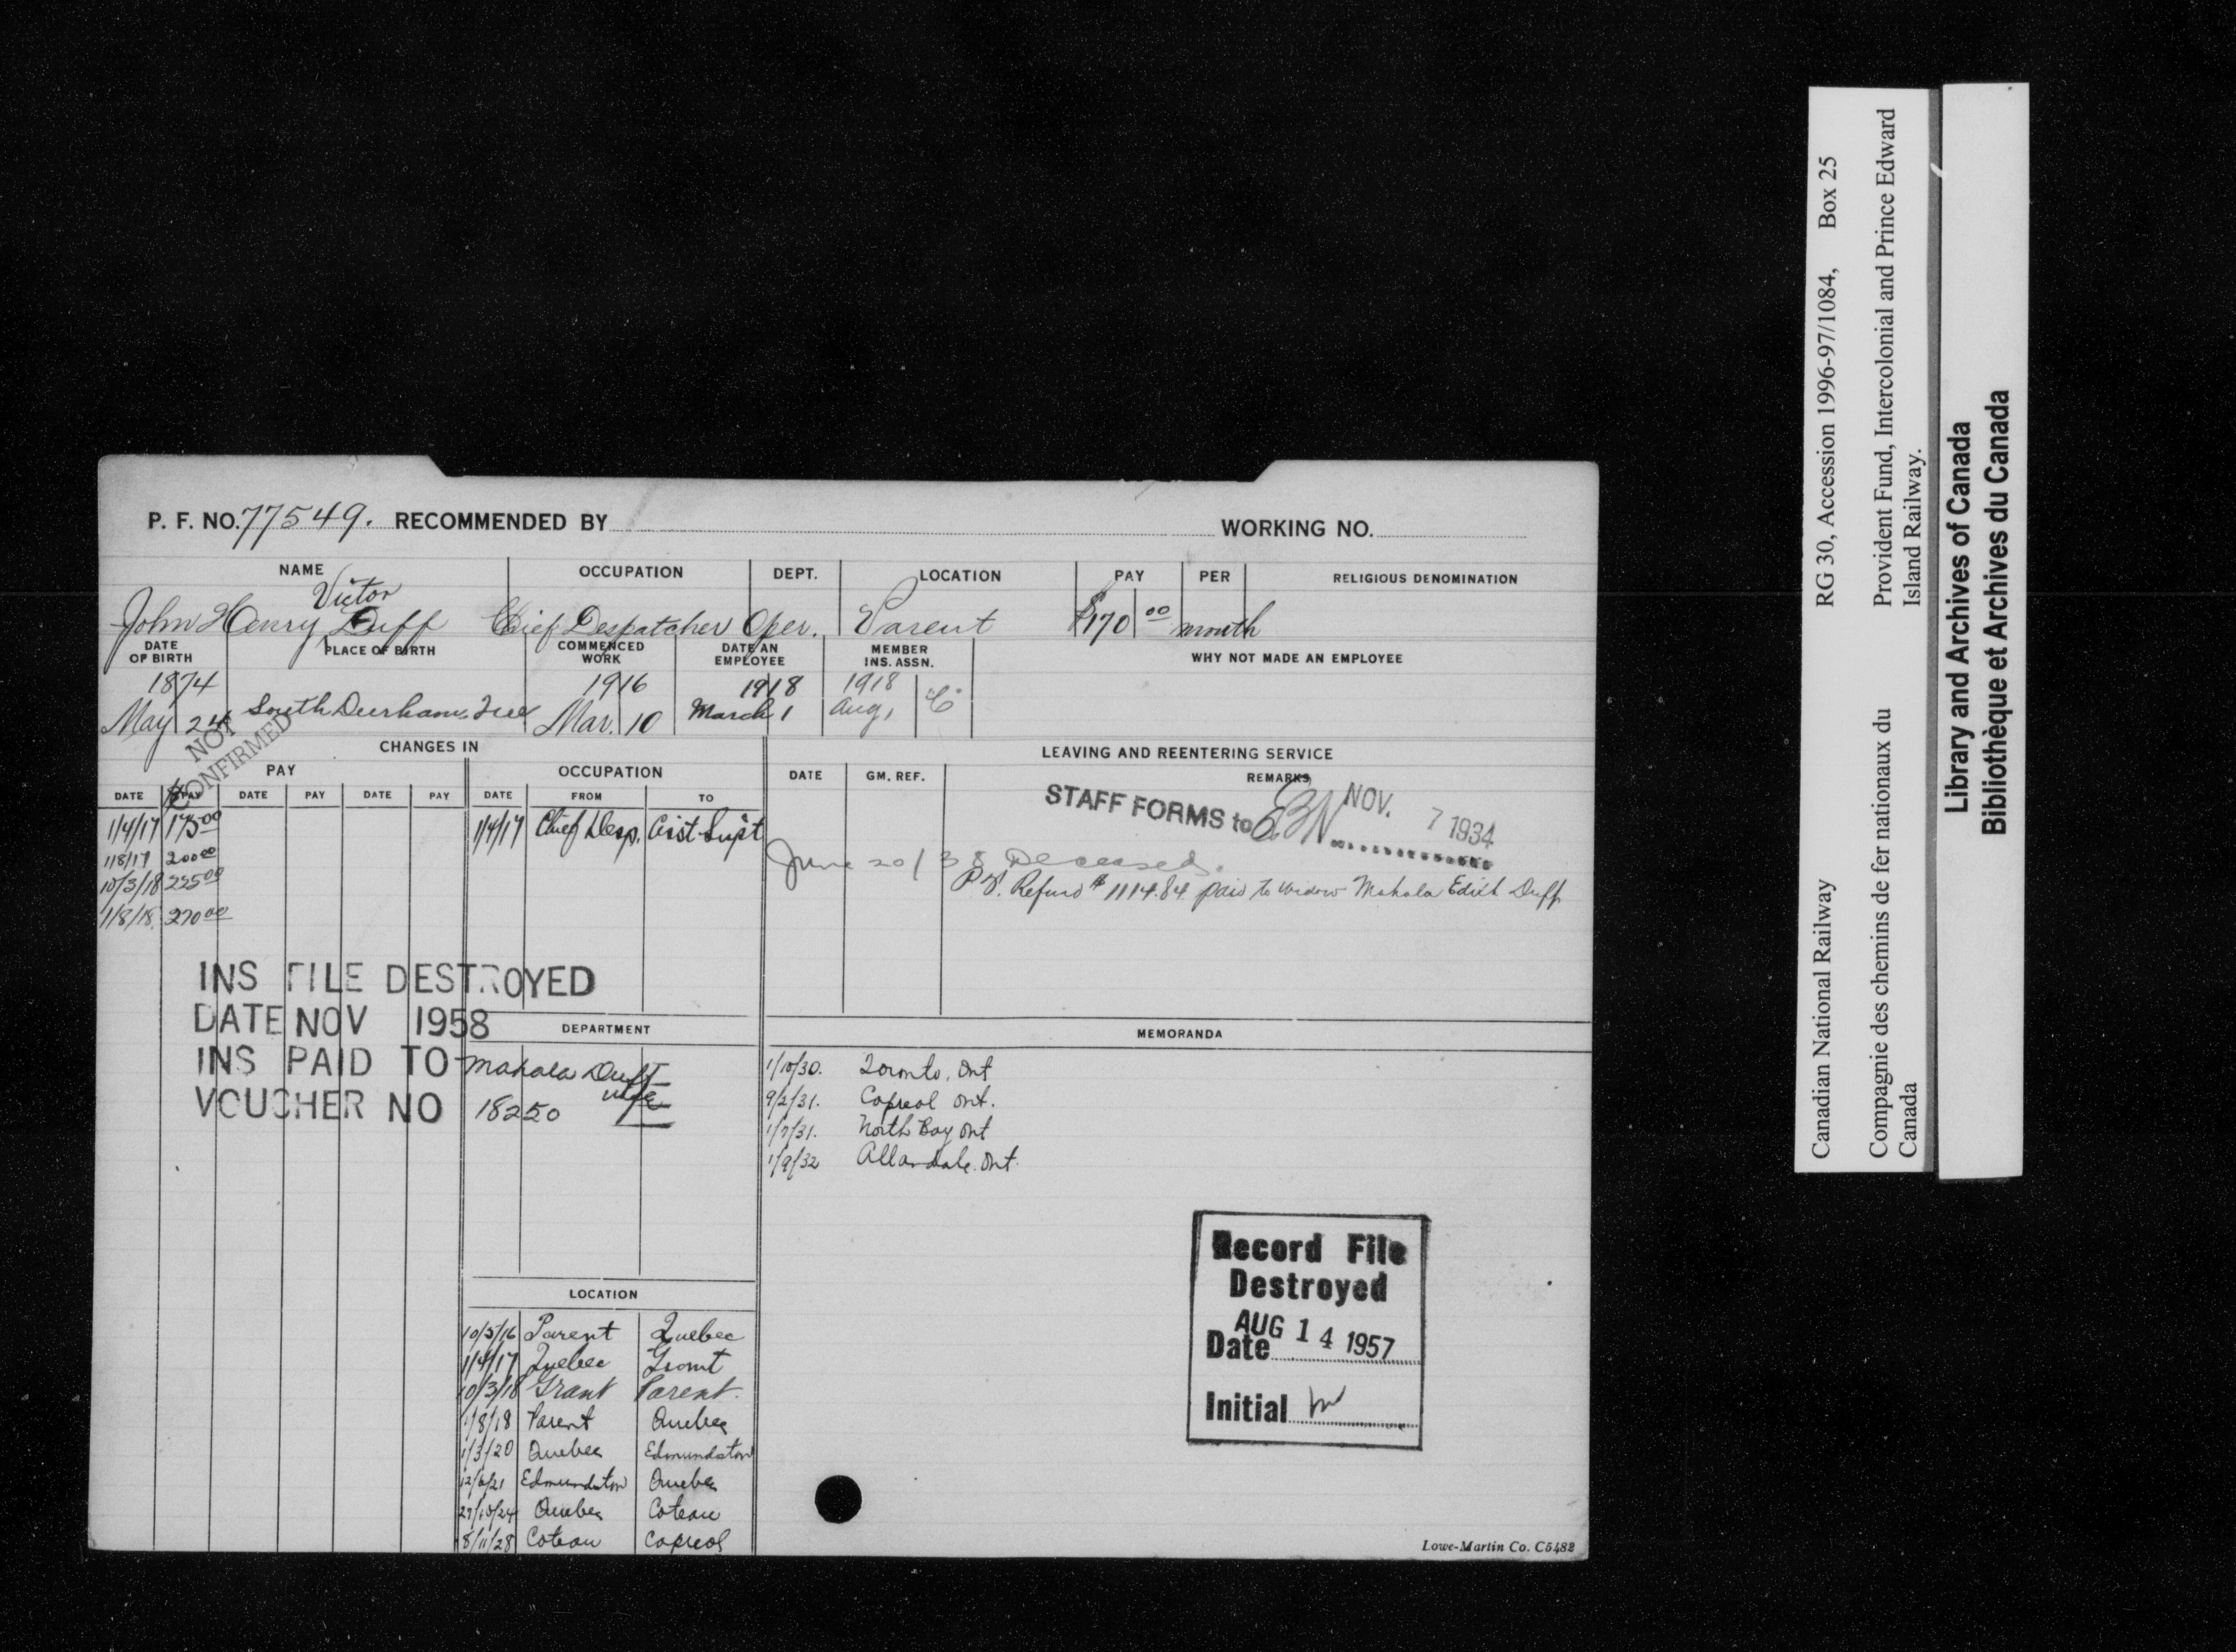 P. F. NO. 77549. RECOMMENDED BY WORKING NO.
NAME OCCUPATION DEPT. LOCATION PAY PER RELIGIOUS DENOMINATION
Victor
John Henry Duff Chief Despatcher Oper. Parent $170 00 month
DATE OF BIRTH PLACE OF BIRTH COMMENCED WORK DATE AN EMPLOYEE MEMBER INS. ASSN. WHY NOT MADE AN EMPLOYEE
1874 1916 1918 1918
May 24 South Durham, Que Mar. 10 March 1 Aug 1 "C"
NOT CONFIRMED
CHANGES IN
PAY OCCUPATION
DATE PAY DATE PAY DATE PAY DATE FROM TO
1/4/17 175 00 1/4/17 Chief Desp. Asst Supt
1/8/17 200 00
10/3/18 225 00
1/8/18. 270 00
LEAVING AND REENTERING SERVICE
DATE GM. REF. REMARKS
STAFF FORMS to NOV. 7 1934
June 20/38 Deceased.
P.F. Refund $1114.84 paid to widow Mahala Edith Duff
INS FILE DESTROYED
DATE NOV 1958
DEPARTMENT
INS PAID TO Mahala Duff
wife
VOUCHER NO 18250
MEMORANDA
1/10/30. Toronto, Ont
9/2/31. Capreol Ont.
1/7/31. North Bay Ont
1/9/32 Allandale. Ont.
LOCATION
10/5/16 Parent Quebec
1/4/17 Quebec Grant
10/3/18 Grant Parent.
1/8/18 Parent Quebec
1/3/20 Quebec Edmundston
12/6/21 Edmundston Quebec
27/10/24 Quebec Coteau
8/11/28 Coteau Capreol
Record File
Destroyed
Date AUG 14 1957
Initial
Lowe-Martin Co. C5482
Canadian National Railway RG 30, Accession 1996-97/1084, Box 25
Compagnie des chemins de fer nationaux du Canada
Provident Fund, Intercolonial and Prince Edward Island Railway.
Library and Archives of Canada
Bibliothèque et Archives du Canada